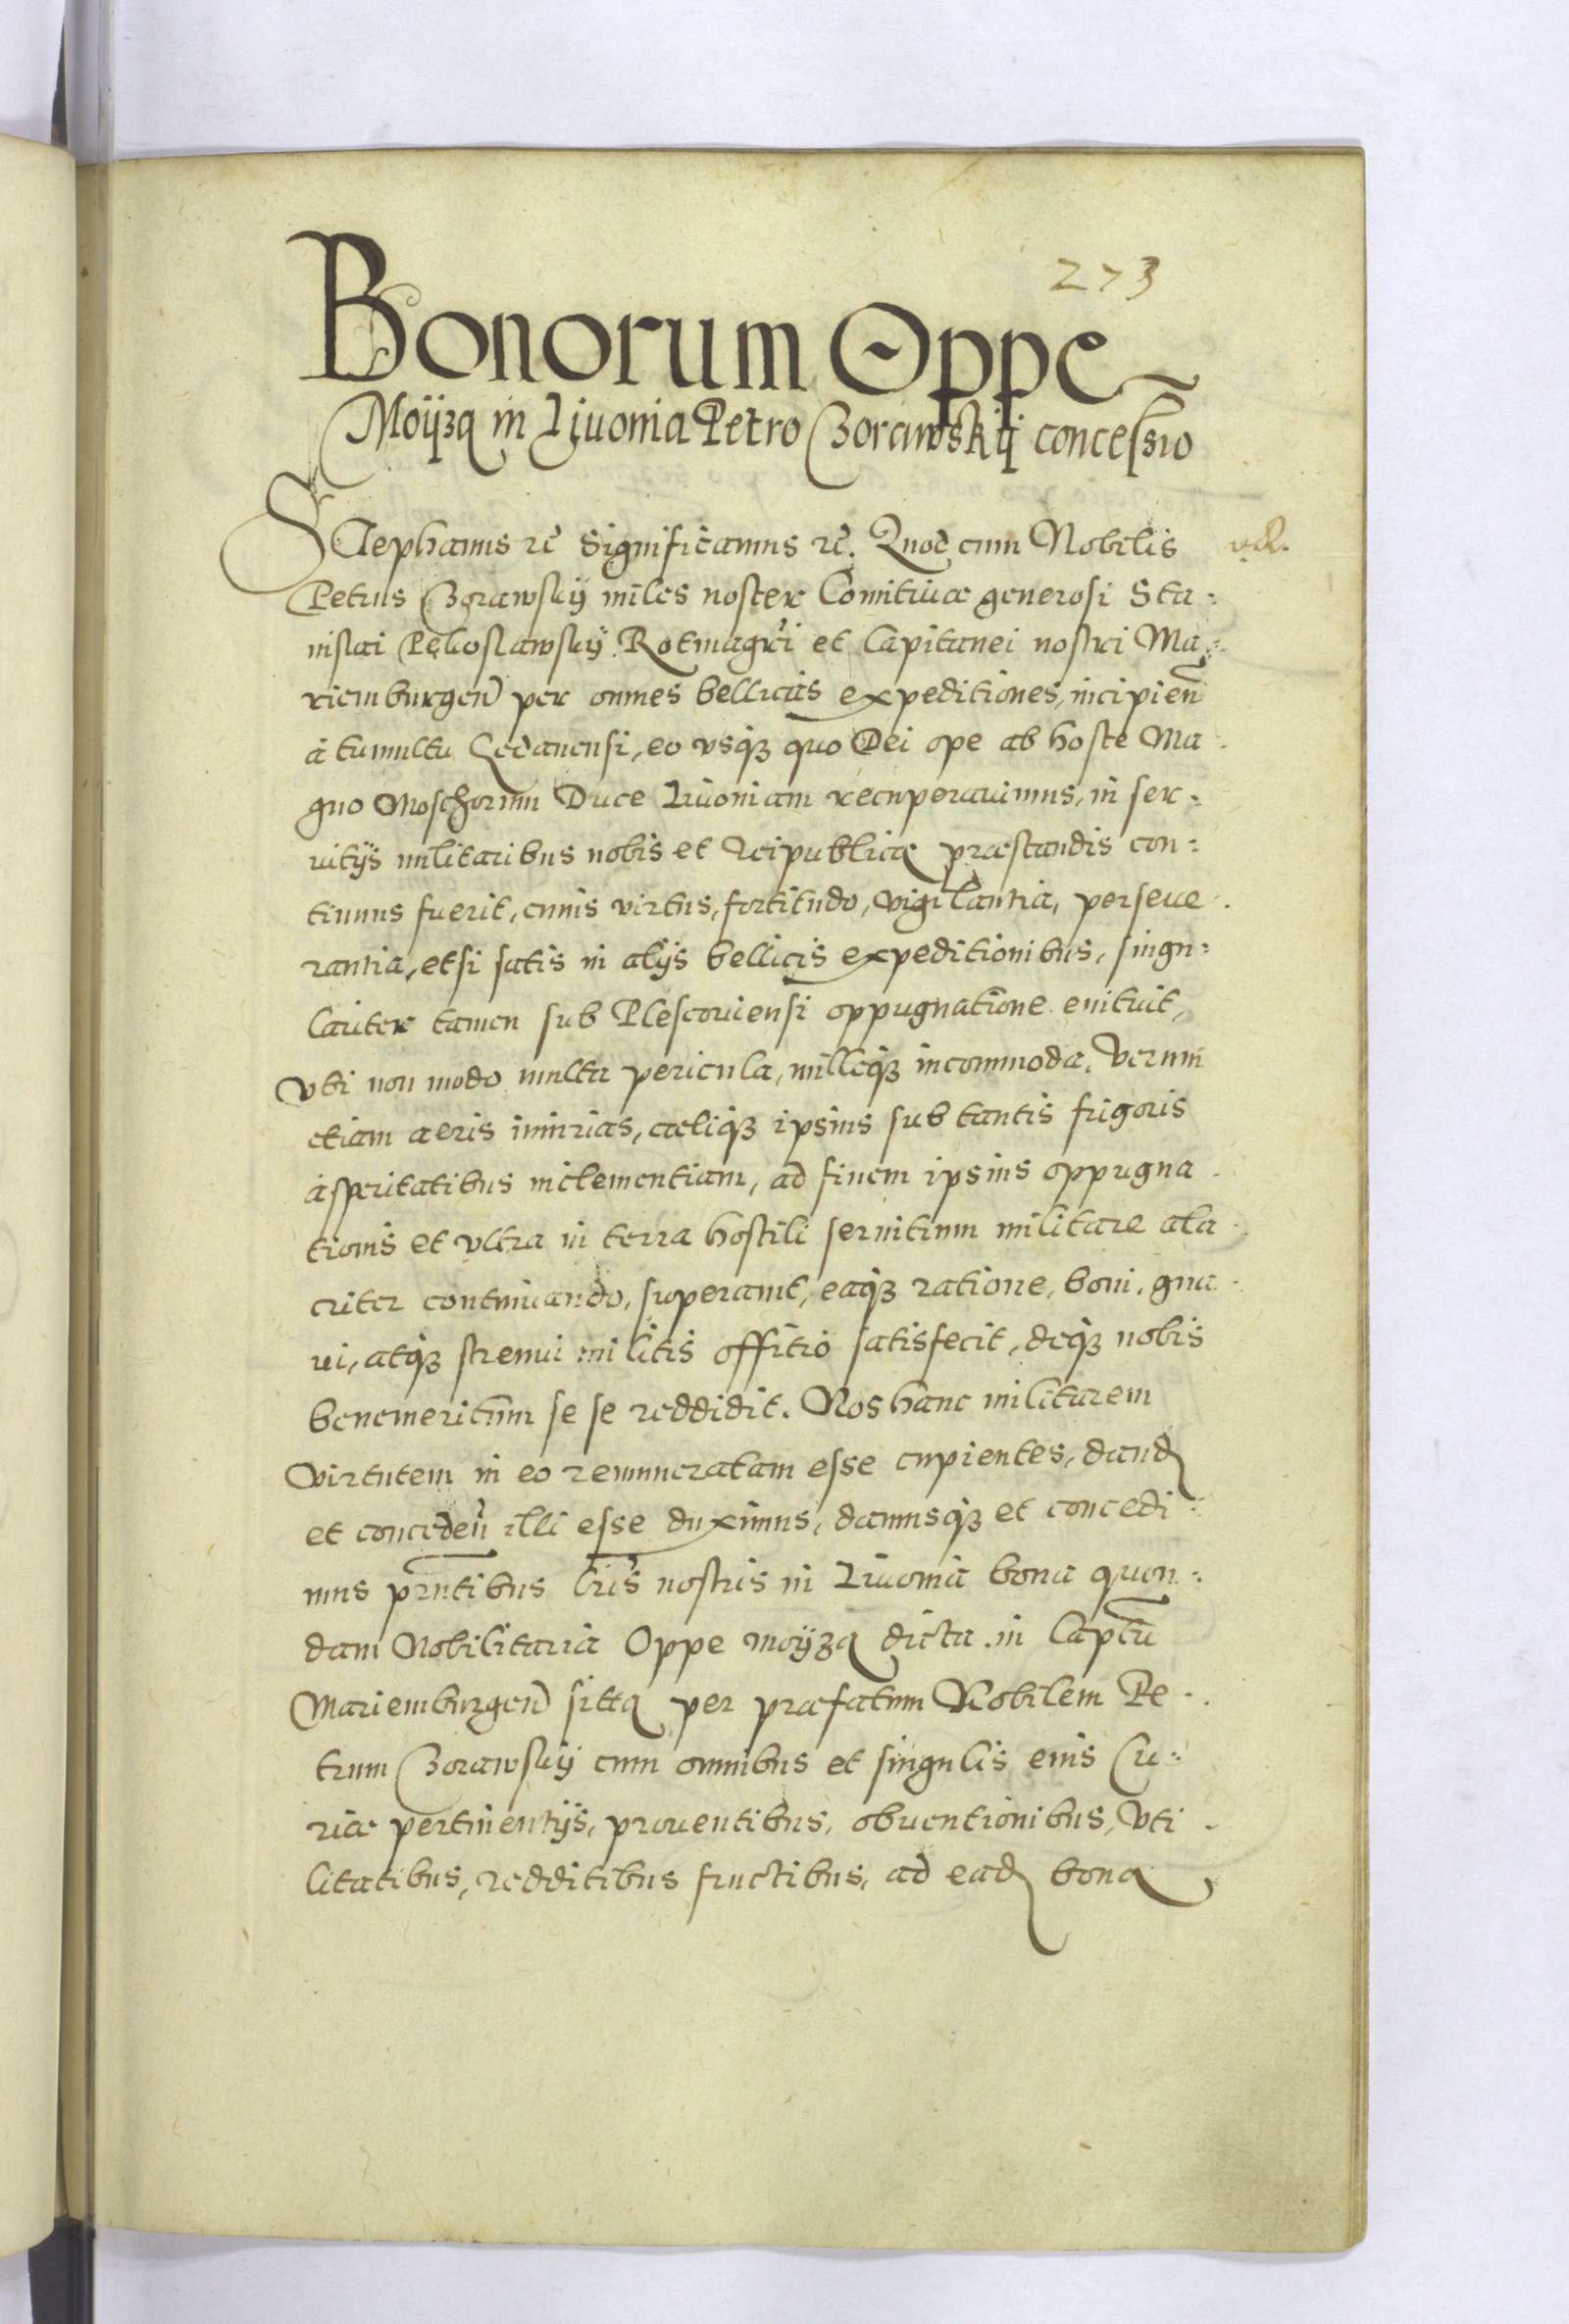 273
Bonorum Oppe
Moÿza in Livonia Petro Zorawskij concessio
Stephanus etc Significamus etc. Quod cum Nobilis
Petrus Zorawskij miles noster Comitivæ generosi Sta:
nislai Pękoslawskÿ Rotmagri et Capitanei nostri Ma:
riemburgen per omnes bellicas expeditiones, incipien
à tumultu Gedanensi, eo vsqȝ quo Dei ope ab hoste Ma
gno Moschorum Duce Livoniam recuperavimus, in ser:
vitijs militaribus nobis et Reipublicæ præstandis con:
tinuus fuerit, cuius virtus, fortitudo, vigilantia, perseue.
rantia, etsi satis in alijs bellicis expeditionibus, singu:
lariter tamen sub Plescoviensi oppugnatione enituit,
Vti non modo multa pericula, milleqȝ incommoda, Verum
etiam aeris iniurias, cæliqȝ ipsius sub tantis frigoris
asperitatibus inclementiam, ad finem ipsius oppugna.
tionis et vltra in terra hostili seruitium militare ala.
criter continuando, superauit, eaqȝ ratione, boni, gna.
ui, atqȝ strenui militis offitio satisfecit, deqȝ nobis
benemeritum se se reddidit. Nos hanc militarem
virtutem in eo remuneratam esse cupientes, dand
et conceden illi esse duximus, damusqȝ et concedi:
mus prntibus lris nostris in Livonia bona quon:
dam Nobilitaria Oppe moÿza dicta in Captu
Mariemburgen sitta per præfatum Nobilem Pe.
trum Zorawskij cum omnibus et singulis eius Cu:
riæ pertinentijs, prouentibus, obuentionibus, Vti.
litatibus, redditibus fructibus, ad ead bona